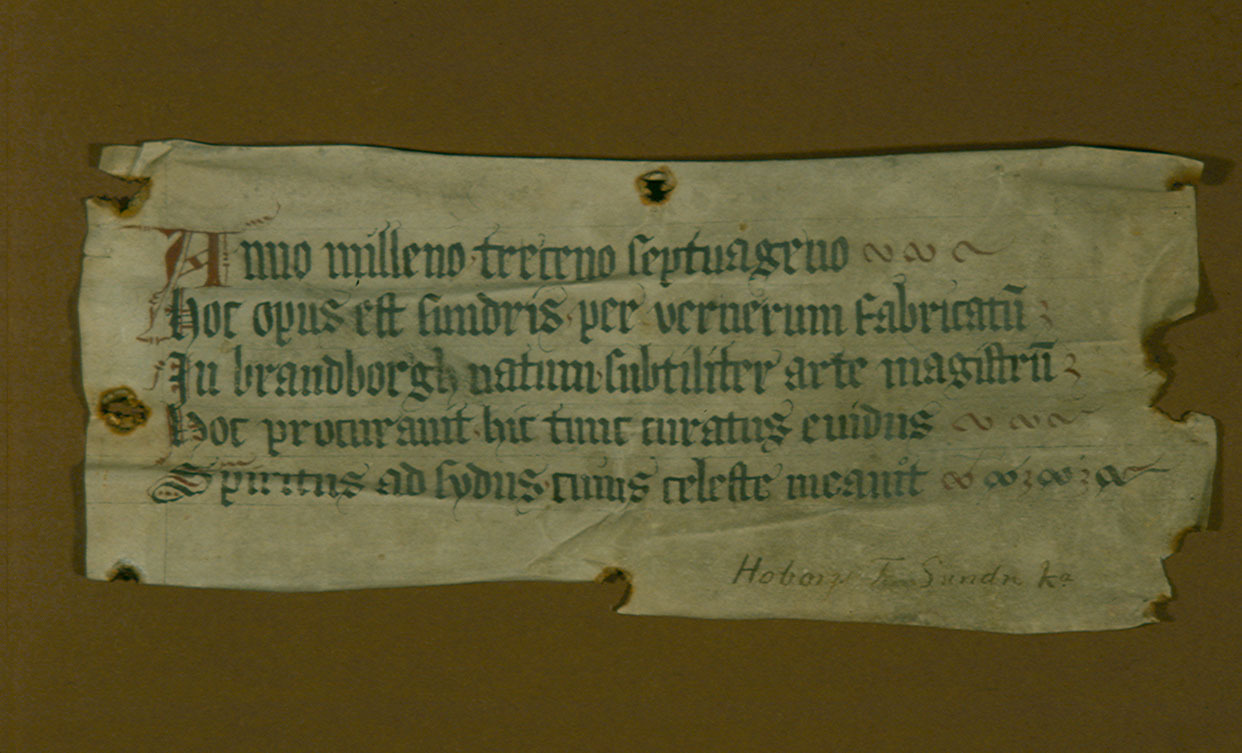 Anno milleno treceno septuageno
hoc opus est sundris per vernerum fabricatū
In brandborgh natum subtiliter arte magistrū
Hoc procurauit hic tunc curatus euidus
Spiritus ad sydus cuius celeste meauit
Hoborg Sundr ka